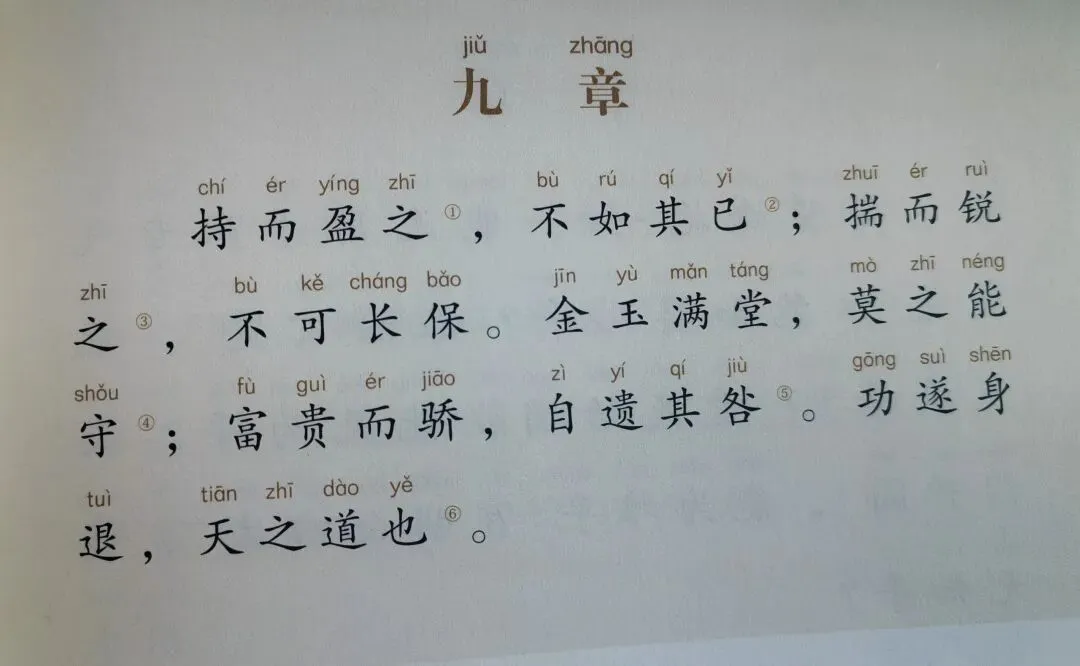 jiǔ zhāng
九 章
chí ér yíng zhī bù rú qí yǐ zhuī ér ruì
持而盈之①，不如其已②；揣而锐
zhī bù kě cháng bǎo jīn yù mǎn táng mò zhī néng
之③，不可长保。金玉满堂，莫之能
shǒu fù guì ér jiāo zì yí qí jiù gōng suì shēn
守④；富贵而骄，自遗其咎⑤。功遂身
tuì tiān zhī dào yě
退，天之道也⑥。